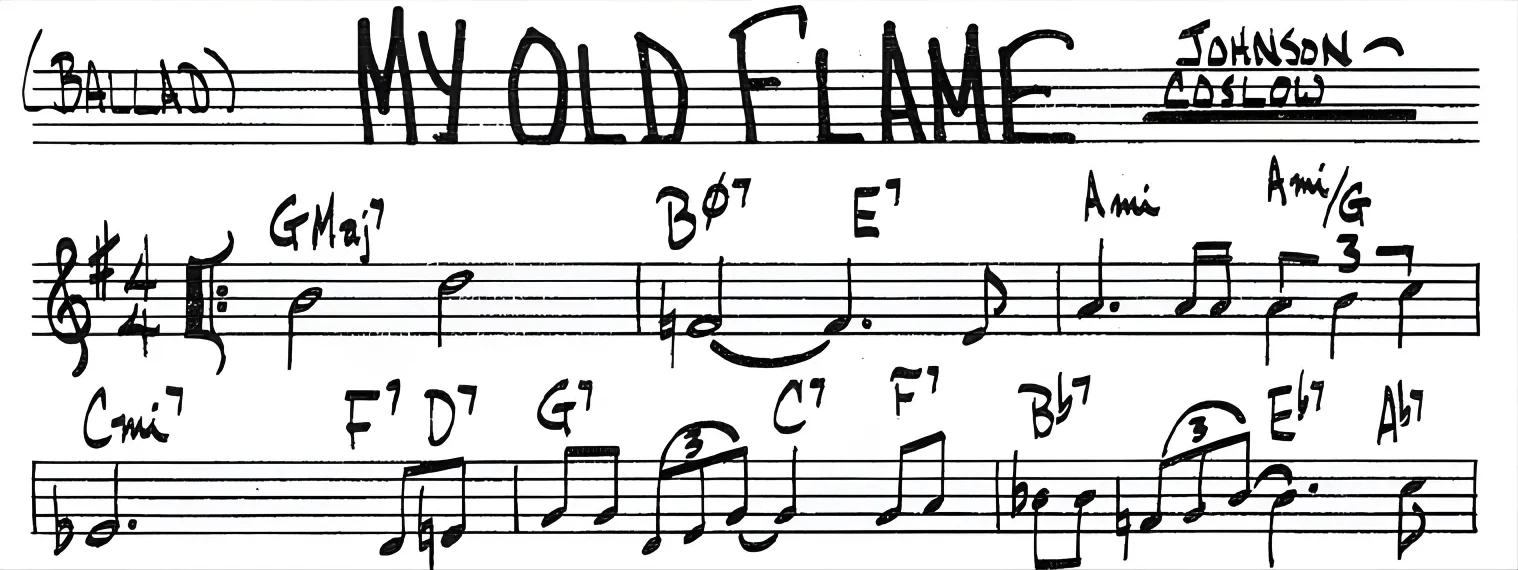 (BALLAD) MY OLD FLAME JOHNSON -
COSLOW
GMaj7 Bø7 E7 Ami Ami/G
4
4
3
Cmi7 F7 D7 G7 C7 F7 Bb7 Eb7 Ab7
3 3